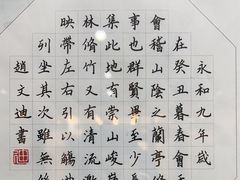 永和九年歲
在癸丑暮春會
會稽山陰之蘭亭
事也群賢畢至少
集此地有崇山峻
林脩竹又有清流
映帶左右引以觴
列坐其次雖無
趙文迪書